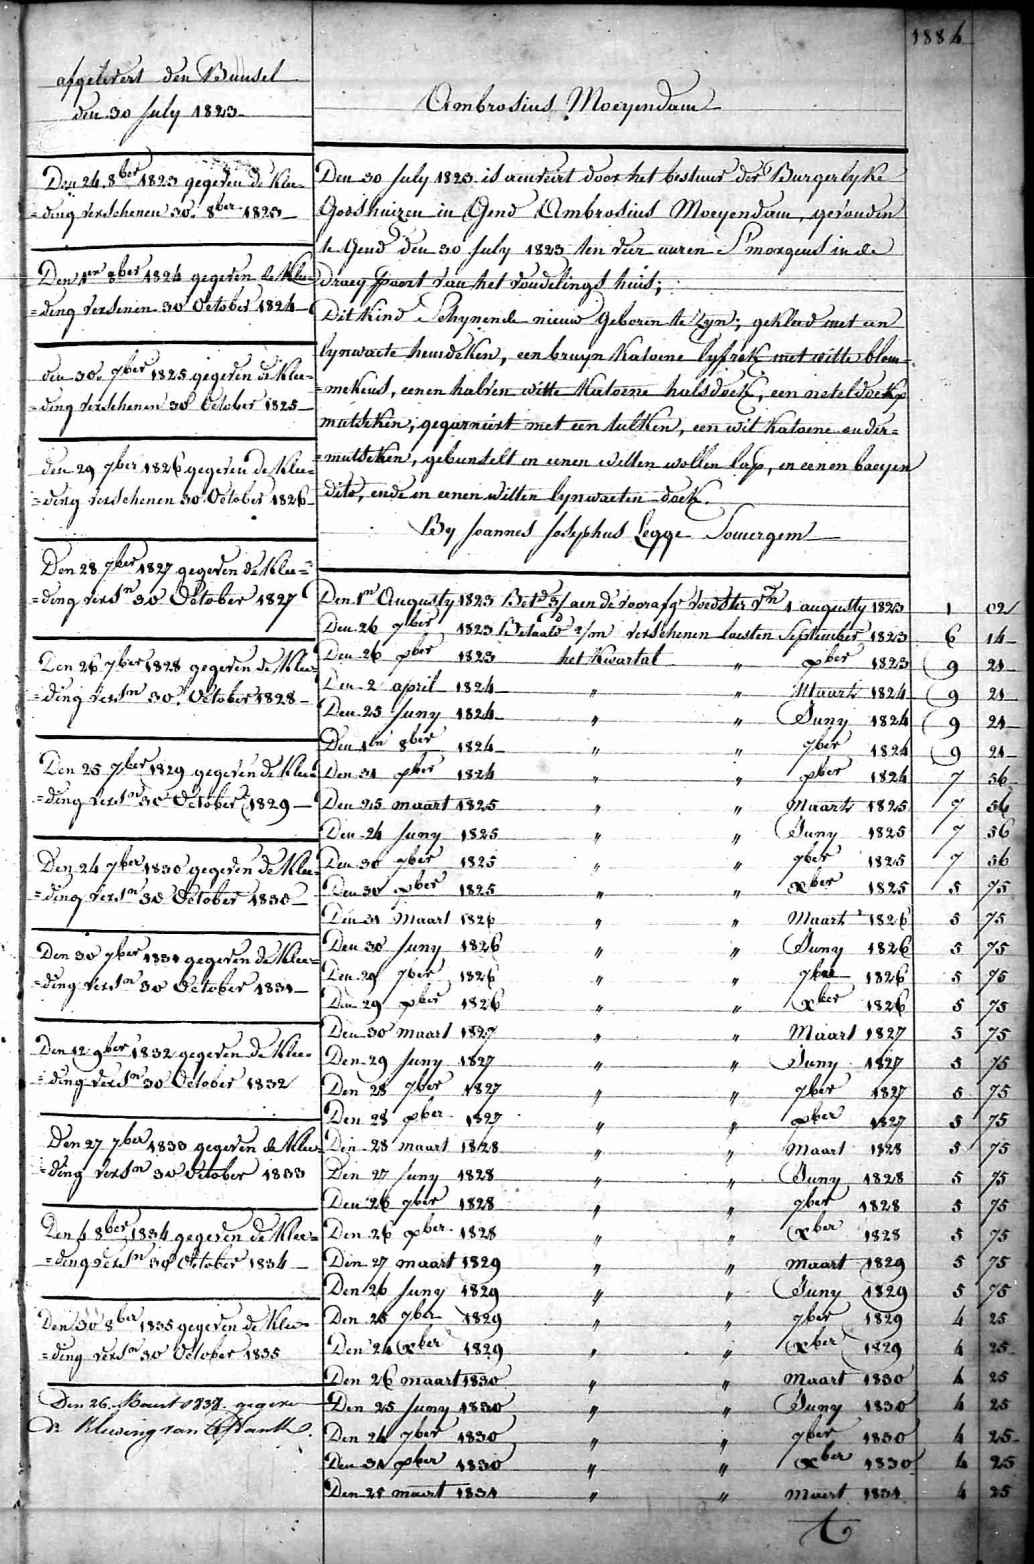 1884
afgelevert den Bunsel
den 30 July 1823
Ambrosius Moeyendam
Den 24 8ber 1823 gegeven de Klee-
=ding verschenen 30. 8ber 1823
Den 1en 8ber 1824 gegeven de Klee-
=ding versenen 30 October 1824
den 30. 7ber 1825 gegeven de Klee-
=ding verschenen 30 October 1825
den 29 7ber 1826 gegeven de Klee-
=ding verschenen 30 October 1826
Den 28 7ber 1827 gegeven de Klee-
=ding versn 30 October 1827
Den 26 7ber 1828 gegeven de Klee-
=ding versn 30. October 1828
Den 25 7ber 1829 gegeven de Klee-
=ding versn 30 October 1829
Den 24 7ber 1830 gegeven de Klee-
=ding versn 30 October 1830
Den 30 7ber 1831 gegeven de Klee-
=ding versn 30 October 1831
Den 12 9ber 1832 gegeven de Klee-
=ding versn 30 October 1832
Den 27 7ber 1833 gegeven de Klee-
=ding versn 30 October 1833
Den 4 8ber 1834 gegeven de Klee-
=ding versn 30 October 1834
Den 30 8ber 1835 gegeven de Klee-
=ding versn 30 October 1835
Den 26. Maert 1837. gegeve
de Kleeding van
Den 30 July 1823 is aenveirt door het bestuur der Burgerlyke
Godshuizen in Gend Ambrosius Moeyendam, gevonden
te Gend den 30 July 1823 ten vier uuren S'morgens in de
draey poort van het vondelings huis;
Dit Kind Schynende nieuw geboren te zyn; gekleed met een
lynwaete hemdeken, een bruyn Katoene lyfrok met witte blom-
=mekens, eenen halven witte Katoene halsdoek, een neteldoek
mutseken; gegarneirt met een tulken, een wit Katoene onder=
=mutseken, gebunselt in eenen witten wollen lap, en eenen baeyen
dito, ende in eenen witten lynwaeten doek.
By Joannes Josephus Legge Somergem
Den 1n Augusty 1823 Betd 3/ aen de voorafg voedster vn 1 augusty 1823 1 02
Den 26 7ber 1823 Betaald 2/m verschenen laesten September 1823 6 14
Den 26 xber 1823 het Kwartal " xber 1823 9 21
Den 2 april 1824 " " Maart 1824 9 21
Den 25 Juny 1824 " " Juny 1824 9 21
Den 1en 8ber 1824 " " 7ber 1824 9 21
Den 31 xber 1824 " " xber 1824 7 56
Den 25 maart 1825 " " Maart 1825 7 56
Den 24 Juny 1825 " " Juny 1825 7 56
Den 30 7ber 1825 " " 7ber 1825 7 56
Den 30 xber 1825 " " xber 1825 5 75
Den 31 Maart 1826 " " Maart 1826 5 75
Den 30 Juny 1826 " " Juny 1826 5 75
Den 29 7ber 1826 " " 7ber 1826 5 75
Den 29 xber 1826 " " xber 1826 5 75
Den 30 maart 1827 " " Maart 1827 5 75
Den 29 Juny 1827 " " Juny 1827 5 75
Den 28 7ber 1827 " " 7ber 1827 5 75
Den 28 xber 1827 " " xber 1827 5 75
Den 28 maart 1828 " " Maart 1828 5 75
Den 27 Juny 1828 " " Juny 1828 5 75
Den 26 7ber 1828 " " 7ber 1828 5 75
Den 26 xber 1828 " " xber 1828 5 75
Den 27 maart 1829 " " maart 1829 5 75
Den 26 Juny 1829 " " Juny 1829 5 75
Den 25 7ber 1829 " " 7ber 1829 4 25
Den 24 xber 1829 " " xber 1829 4 25
Den 26 maart 1830 " " Maart 1830 4 25
Den 25 Juny 1830 " " Juny 1830 4 25
Den 24 7ber 1830 " " 7ber 1830 4 25
Den 31 xber 1830 " " xber 1830 4 25
Den 25 maert 1831 " " maert 1831 4 25